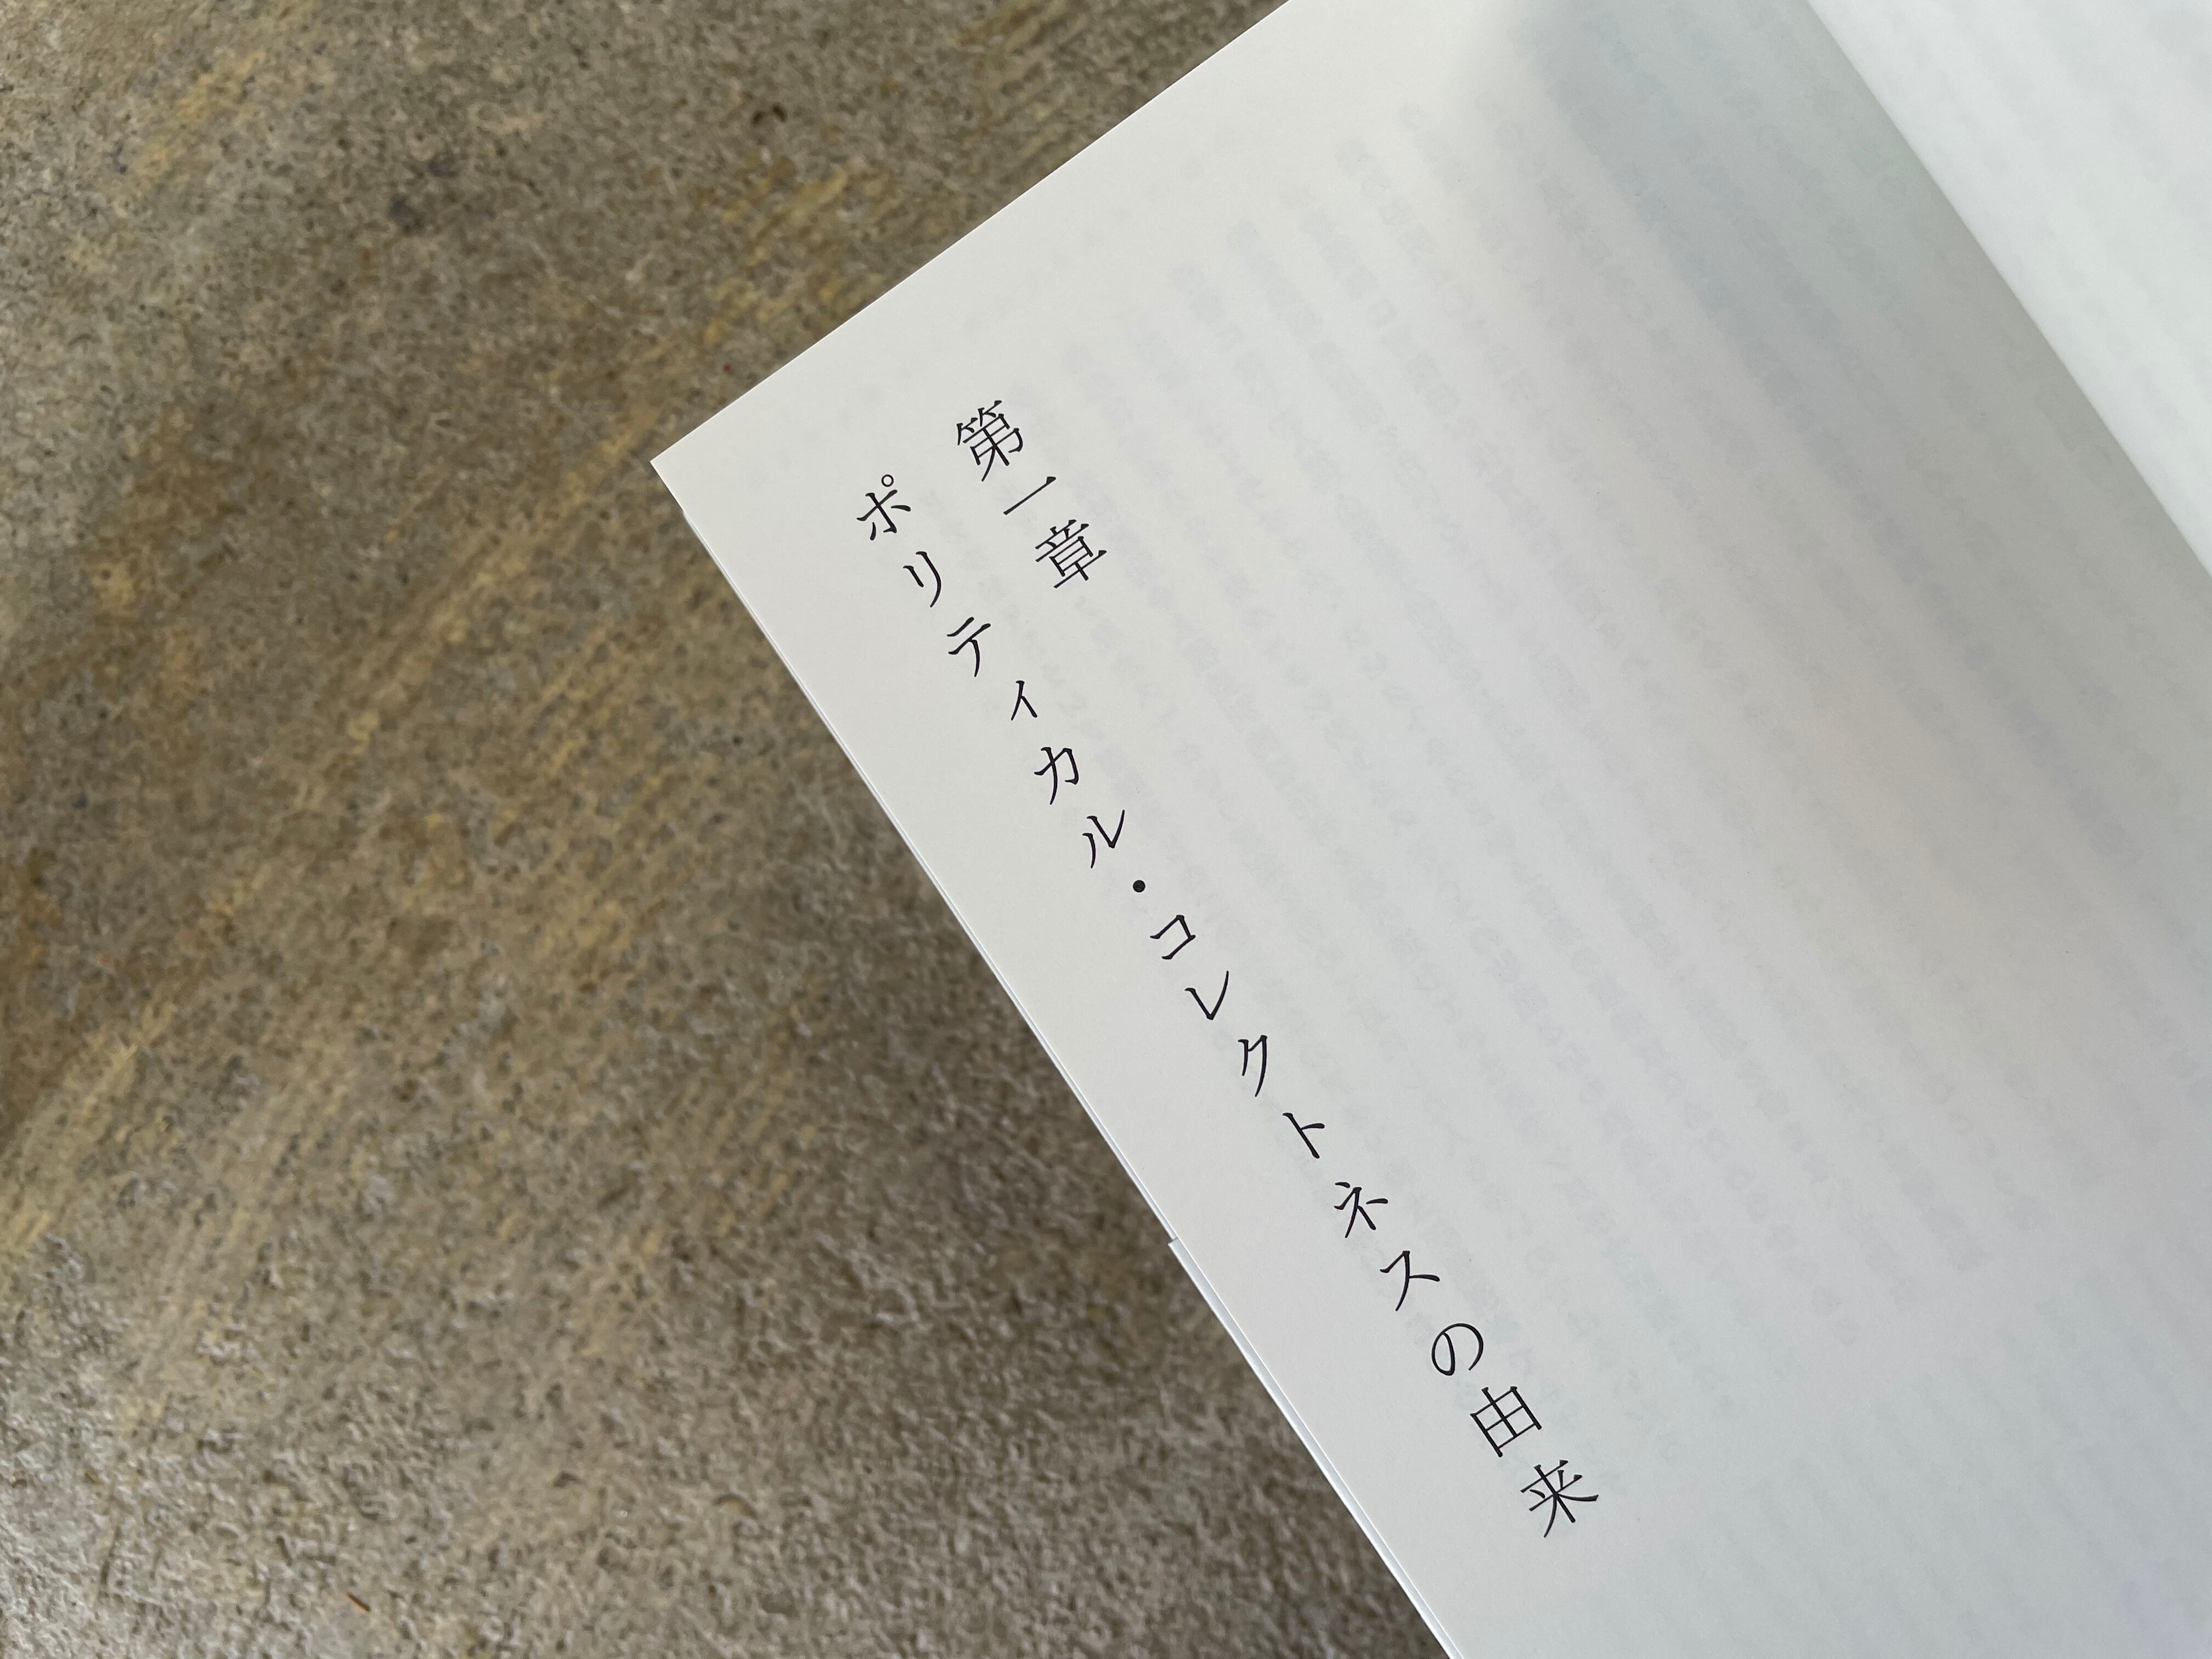 第一章
ポリティカル・コレクトネスの由来